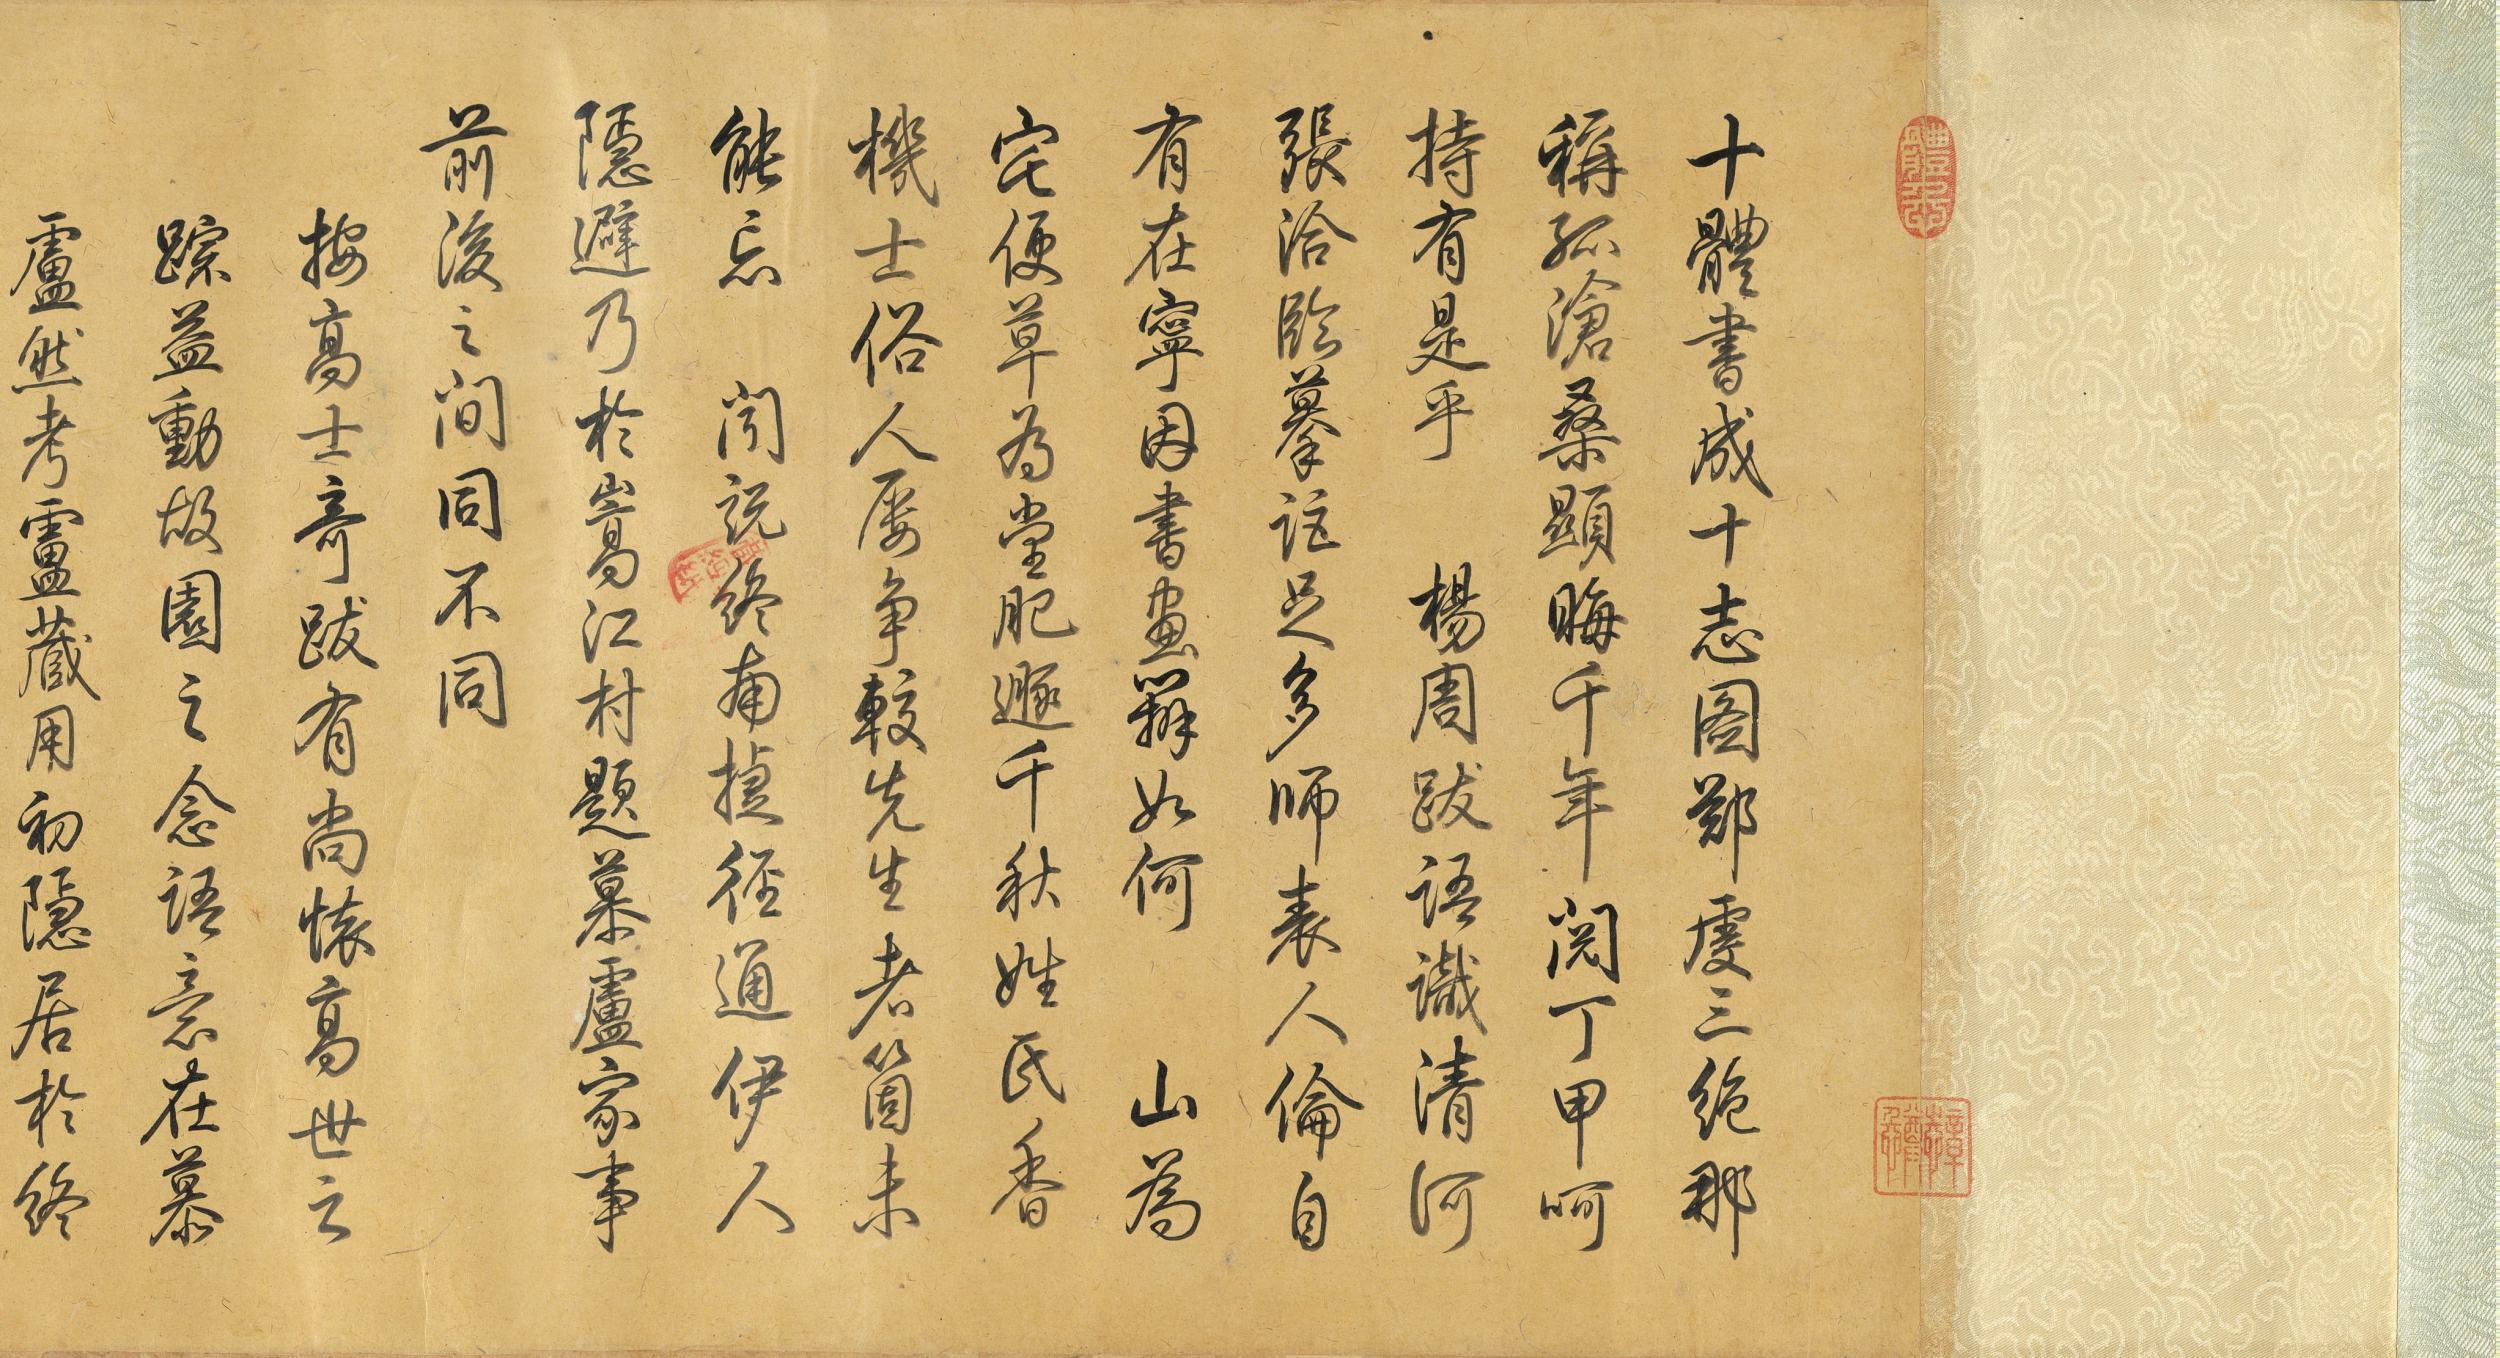 十體書成十志图鄭虔三絶那
稱孤滄桑顯晦千年閲丁甲呵
持有是乎　楊周跋語識清河
張洽臨摹詎足多師表人倫自
有在寧因書畫辯如何　山為
宅便草為堂肥遯千秋姓氏香
機士俗人屡争較先生者箇未
能忘　聞説終南捷徑通伊人
隱避乃於嵩江村題慕盧家事
前後之間同不同
按髙士竒跋有尚懐髙世之
蹤益動故園之念語意在慕
盧然考盧藏用初隱居於終